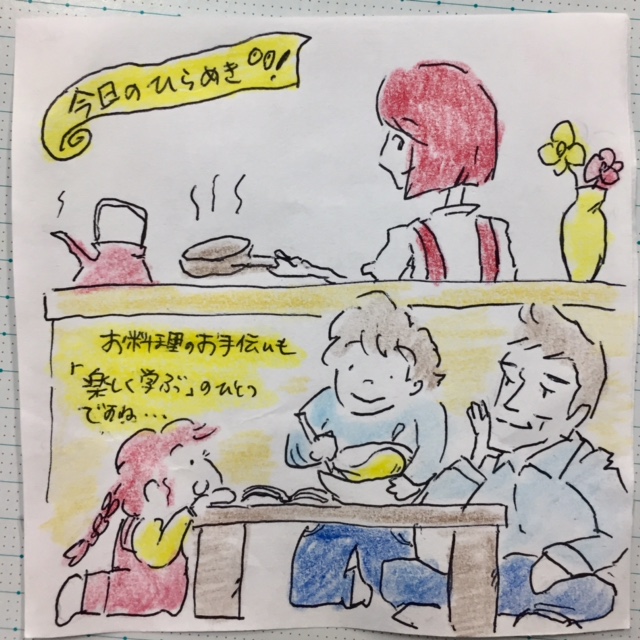 今日のひらめき°°!
お料理のお手伝いも
「楽しく学ぶ」のひとつ
ですね...